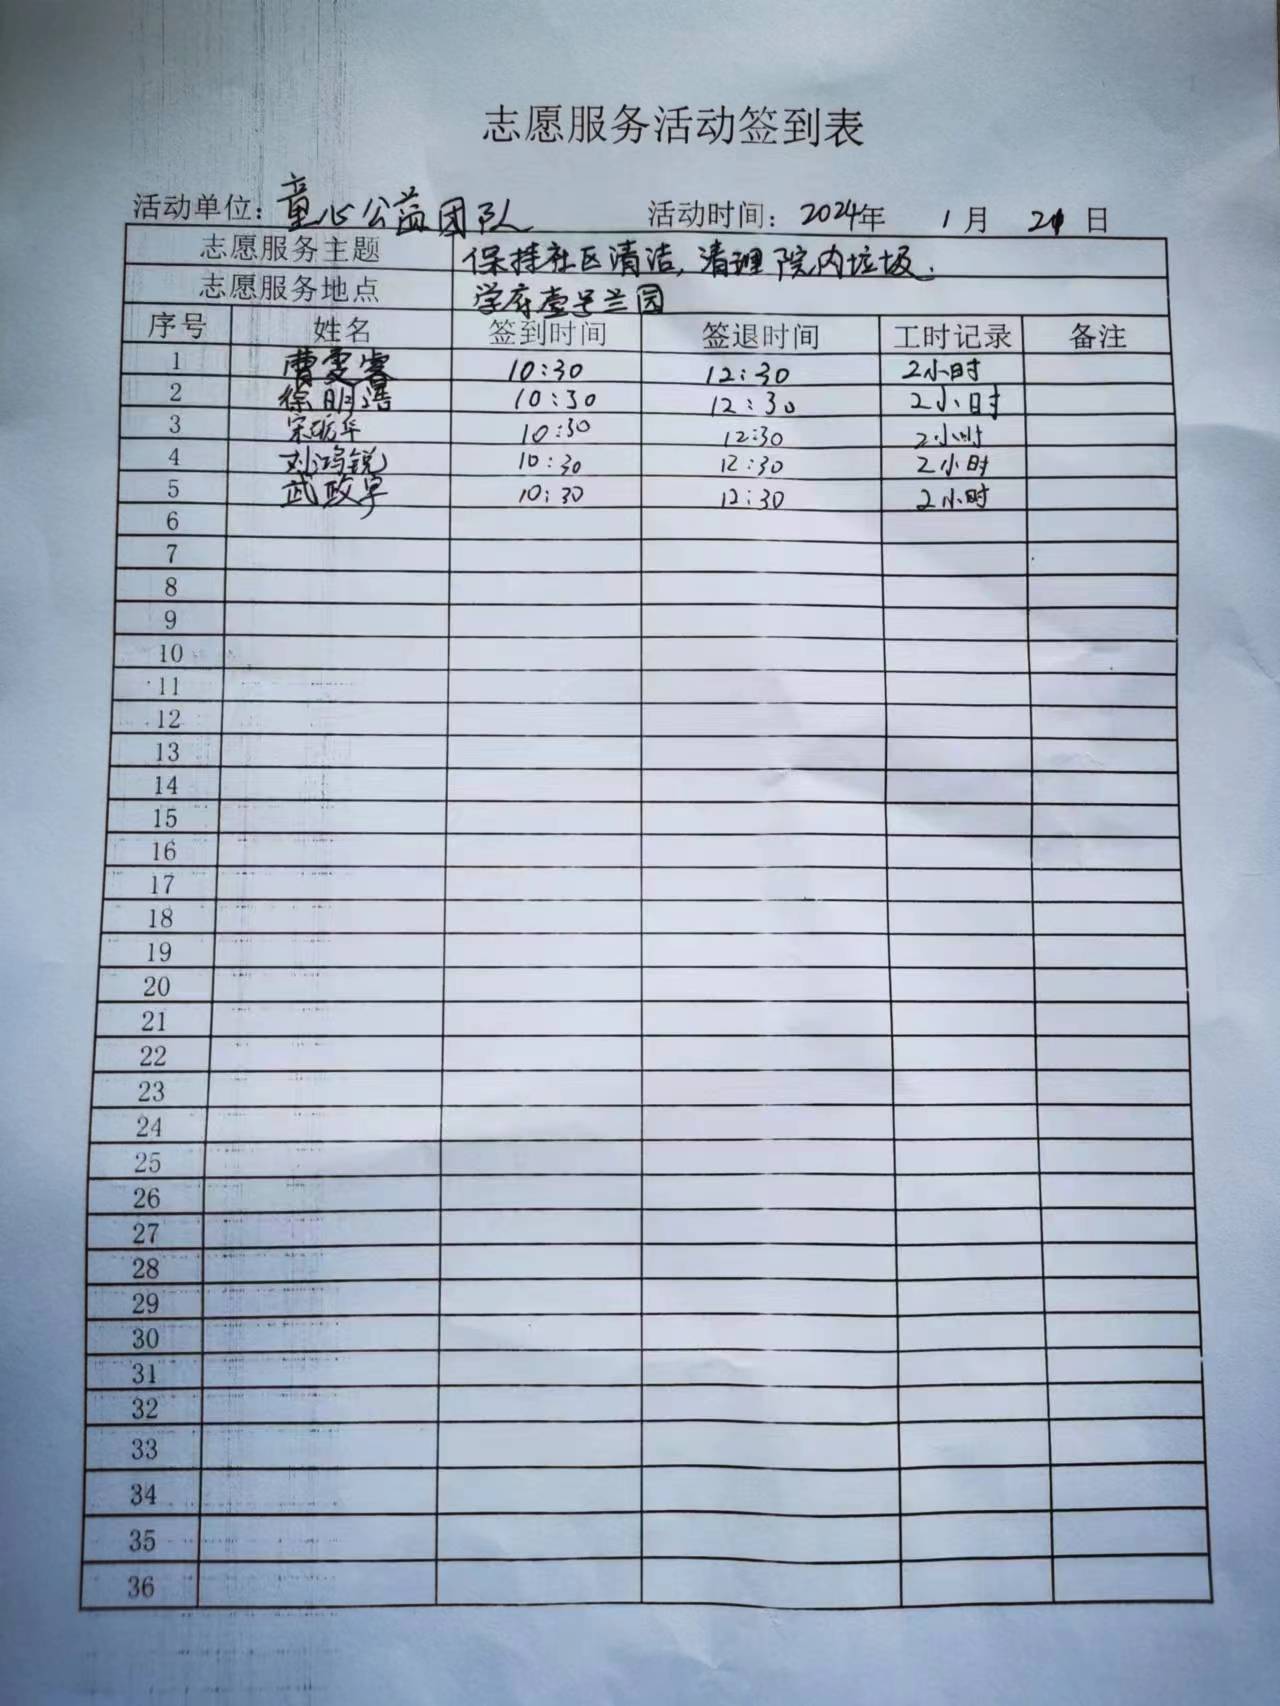 志愿服务活动签到表
活动单位：童心公益团队 活动时间：2024年 1月 21日
志愿服务主题 保持社区清洁，清理院内垃圾.
志愿服务地点 学府壹号兰园
序号 姓名 签到时间 签退时间 工时记录 备注
1 曹雯睿 10:30 12:30 2小时
2 徐明浩 10:30 12:30 2小时
3 宋砺华 10:30 12:30 2小时
4 刘鸿锐 10:30 12:30 2小时
5 武政卓 10:30 12:30 2小时
6
7
8
9
10
11
12
13
14
15
16
17
18
19
20
21
22
23
24
25
26
27
28
29
30
31
32
33
34
35
36